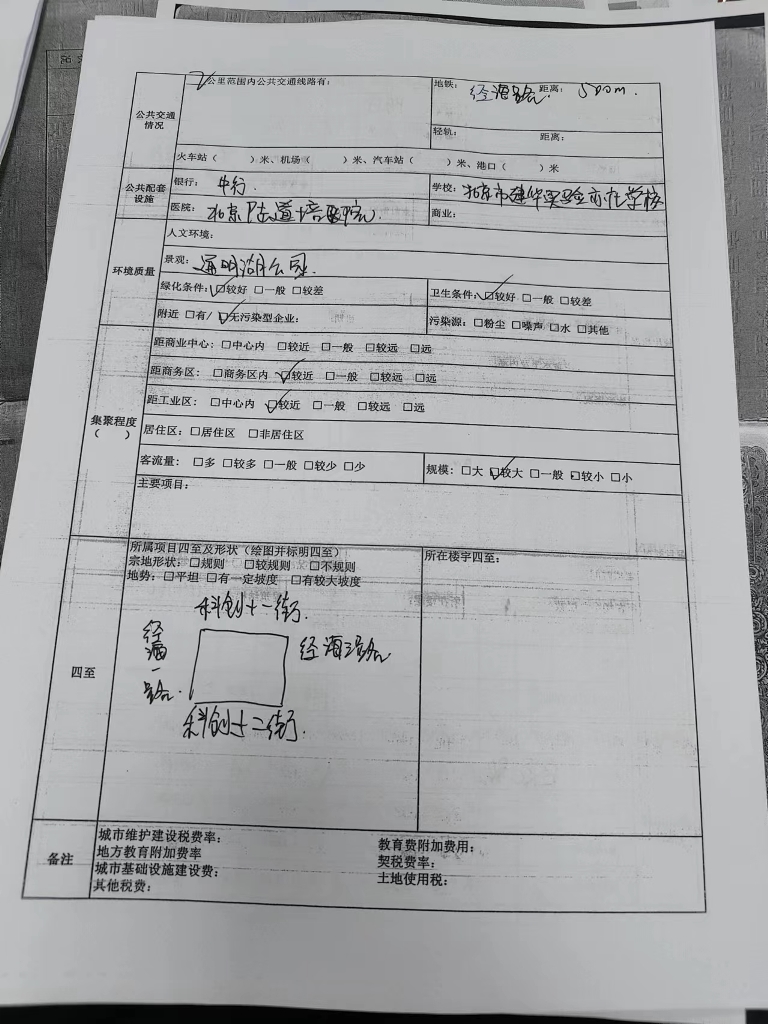 公共交通情况
2公里范围内公共交通线路有：
地铁： 经海路 距离： 500m.
轻轨： 距离：
火车站（ ）米、机场（ ）米、汽车站（ ）米、港口（ ）米
公共配套设施
银行： 中行. 学校： 北京市建华实验亦庄学校
医院： 北京陆道培医院. 商业：
环境质量
人文环境：
景观： 通明湖公园.
绿化条件：☑较好 □一般 □较差 卫生条件：☑较好 □一般 □较差
附近 □有/☑无污染型企业： 污染源：□粉尘 □噪声 □水 □其他
集聚程度
（ ）
距商业中心：□中心内 □较近 □一般 □较远 □远
距商务区：□商务区内 ☑较近 □一般 □较远 □远
距工业区：□中心内 ☑较近 □一般 □较远 □远
居住区：□居住区 □非居住区
客流量：□多 □较多 □一般 □较少 □少 规模：□大 ☑较大 □一般 □较小 □小
主要项目：
四至
所属项目四至及形状（绘图并标明四至） 所在楼宇四至：
宗地形状：□规则 □较规则 □不规则
地势：□平坦 □有一定坡度 □有较大坡度
科创十一街.
经海一路.
经海三路
科创十二街.
备注
城市维护建设税费率： 教育费附加费用：
地方教育附加费率 契税费率：
城市基础设施建设费： 土地使用税：
其他税费：